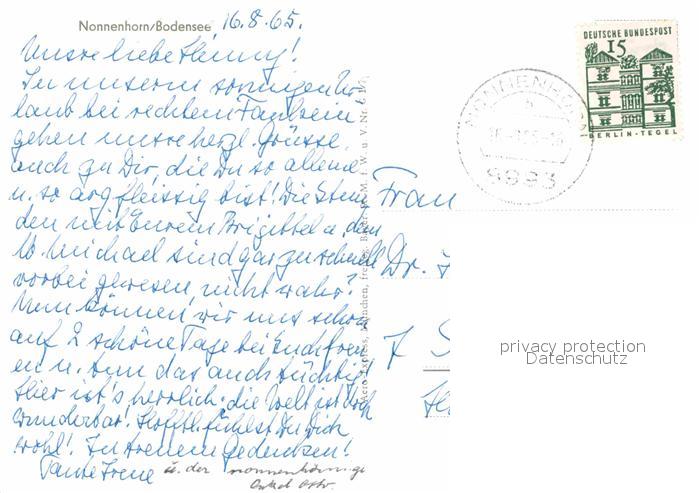 Nonnenhorn/Bodensee 16.8.65.
Unsre liebe Henny!
In unserm sonnigen Ur-
laub bei rechtem Faulsein
gehen unsre herzl. Grüsse
auch zu Dir, die Du so allene
u. so arg fleissig bist! Die Stun
den mit Eurem Brigittel u. dem
M. Michael sind gar zu schnell
vorbei gewesen, nicht wahr?
Nun können wir uns schon
auf 2 schöne Tage bei Euch freu
en u. tun das auch tüchtig!
Hier ist's herrlich: die Welt ist doch
wunderbar! Hofftl. fühlst Du Dich
wohl! In treuem Gedenken!
Tante Irene u. der nonnenhornige
Onkel Otto.
DEUTSCHE BUNDESPOST
15
BERLIN-TEGEL
NONNENHORN
8993
Frau
Dr.
7
privacy protection
Datenschutz